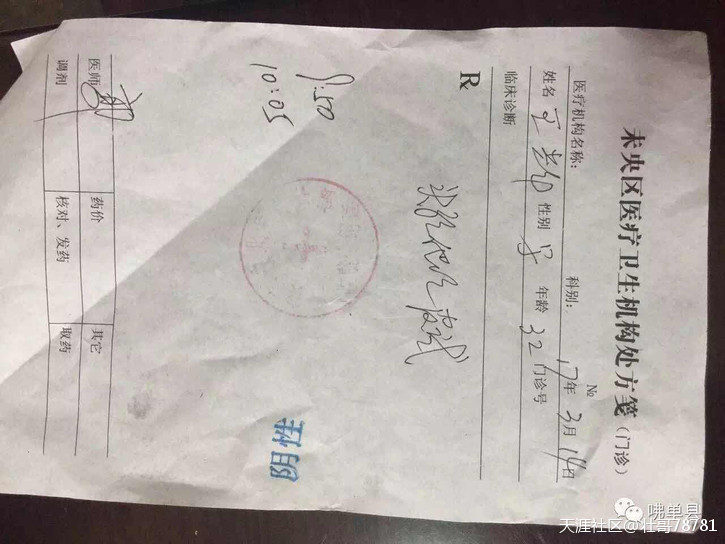 未央区医疗卫生机构处方笺（门诊）
№
医疗机构名称： 科别： 17年3月14日
姓名 性别 男 年龄 32 门诊号
临床诊断
R
皮试
阴性
9:50
10:05
医师 药价 其它
调剂 核对、发药 取药
咈单县
天涯社区@壮哥78781